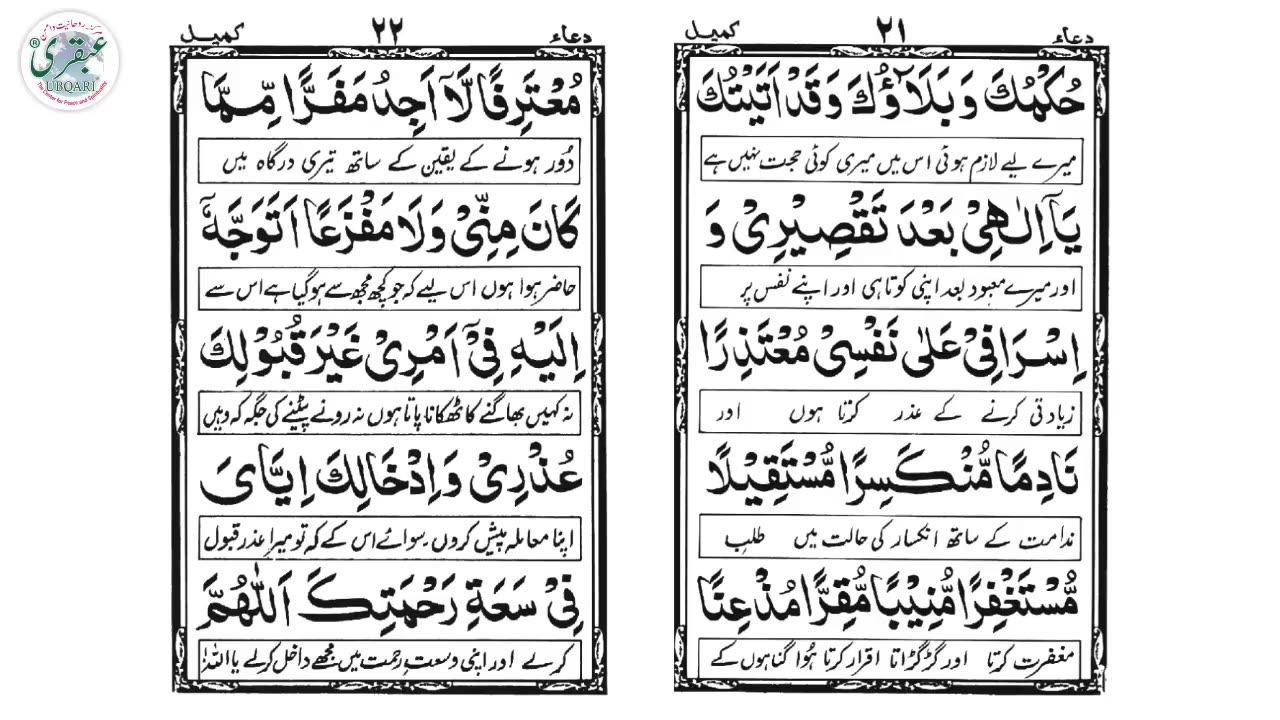 دعاء ٢١ كميل
حُكْمُكَ وَ بَلَاۤؤُكَ وَ قَدْ اَتَيْتُكَ
میرے لیے لازم ہوئی اس میں میری کوئی حجت نہیں ہے
يَاۤ اِلٰهِيْ بَعْدَ تَقْصِيْرِيْ وَ
اور میرے معبود بعد اپنی کوتاہی اور اپنے نفس پر
اِسْرَافِيْ عَلٰى نَفْسِيْ مُعْتَذِرًا
زیادتی کرنے کے عذر کرتا ہوں اور
نَادِمًا مُّنْكَسِرًا مُّسْتَقِيْلًا
ندامت کے ساتھ انکسار کی حالت میں طلب
مُّسْتَغْفِرًا مُّنِيْبًا مُّقِرًّا مُذْعِنًا
مغفرت کرتا اور گڑگڑاتا اقرار کرتا ہُوا گناہوں کے
دعاء ٢٢ كميل
مُعْتَرِفًا لَّاۤ اَجِدُ مَفَرًّا مِّمَّا
دُور ہونے کے یقین کے ساتھ تیری درگاہ میں
كَانَ مِنِّيْ وَلَا مَفْزَعًا اَتَوَجَّهُ
حاضر ہوا ہوں اس لیے کہ جو کچھ مجھ سے ہو گیا ہے اس سے
اِلَيْهِ فِيْۤ اَمْرِيْ غَيْرَ قُبُوْلِكَ
نہ کہیں بھاگنے کا ٹھکانا پاتا ہوں نہ رونے پیٹنے کی جگہ کہ وہیں
عُذْرِيْ وَ اِدْخَالِكَ اِيَّايَ
اپنا معاملہ پیش کروں۔ سوائے اس کے کہ تو میرا عذر قبول
فِيْ سَعَةِ رَحْمَتِكَ اَللّٰهُمَّ
کر لے اور اپنی وسعتِ رحمت میں مجھے داخل کر لے یا اللہ!
مرکز روحانیت و امن
عبقری ®
UBQARI
The Center for Peace and Spirituality